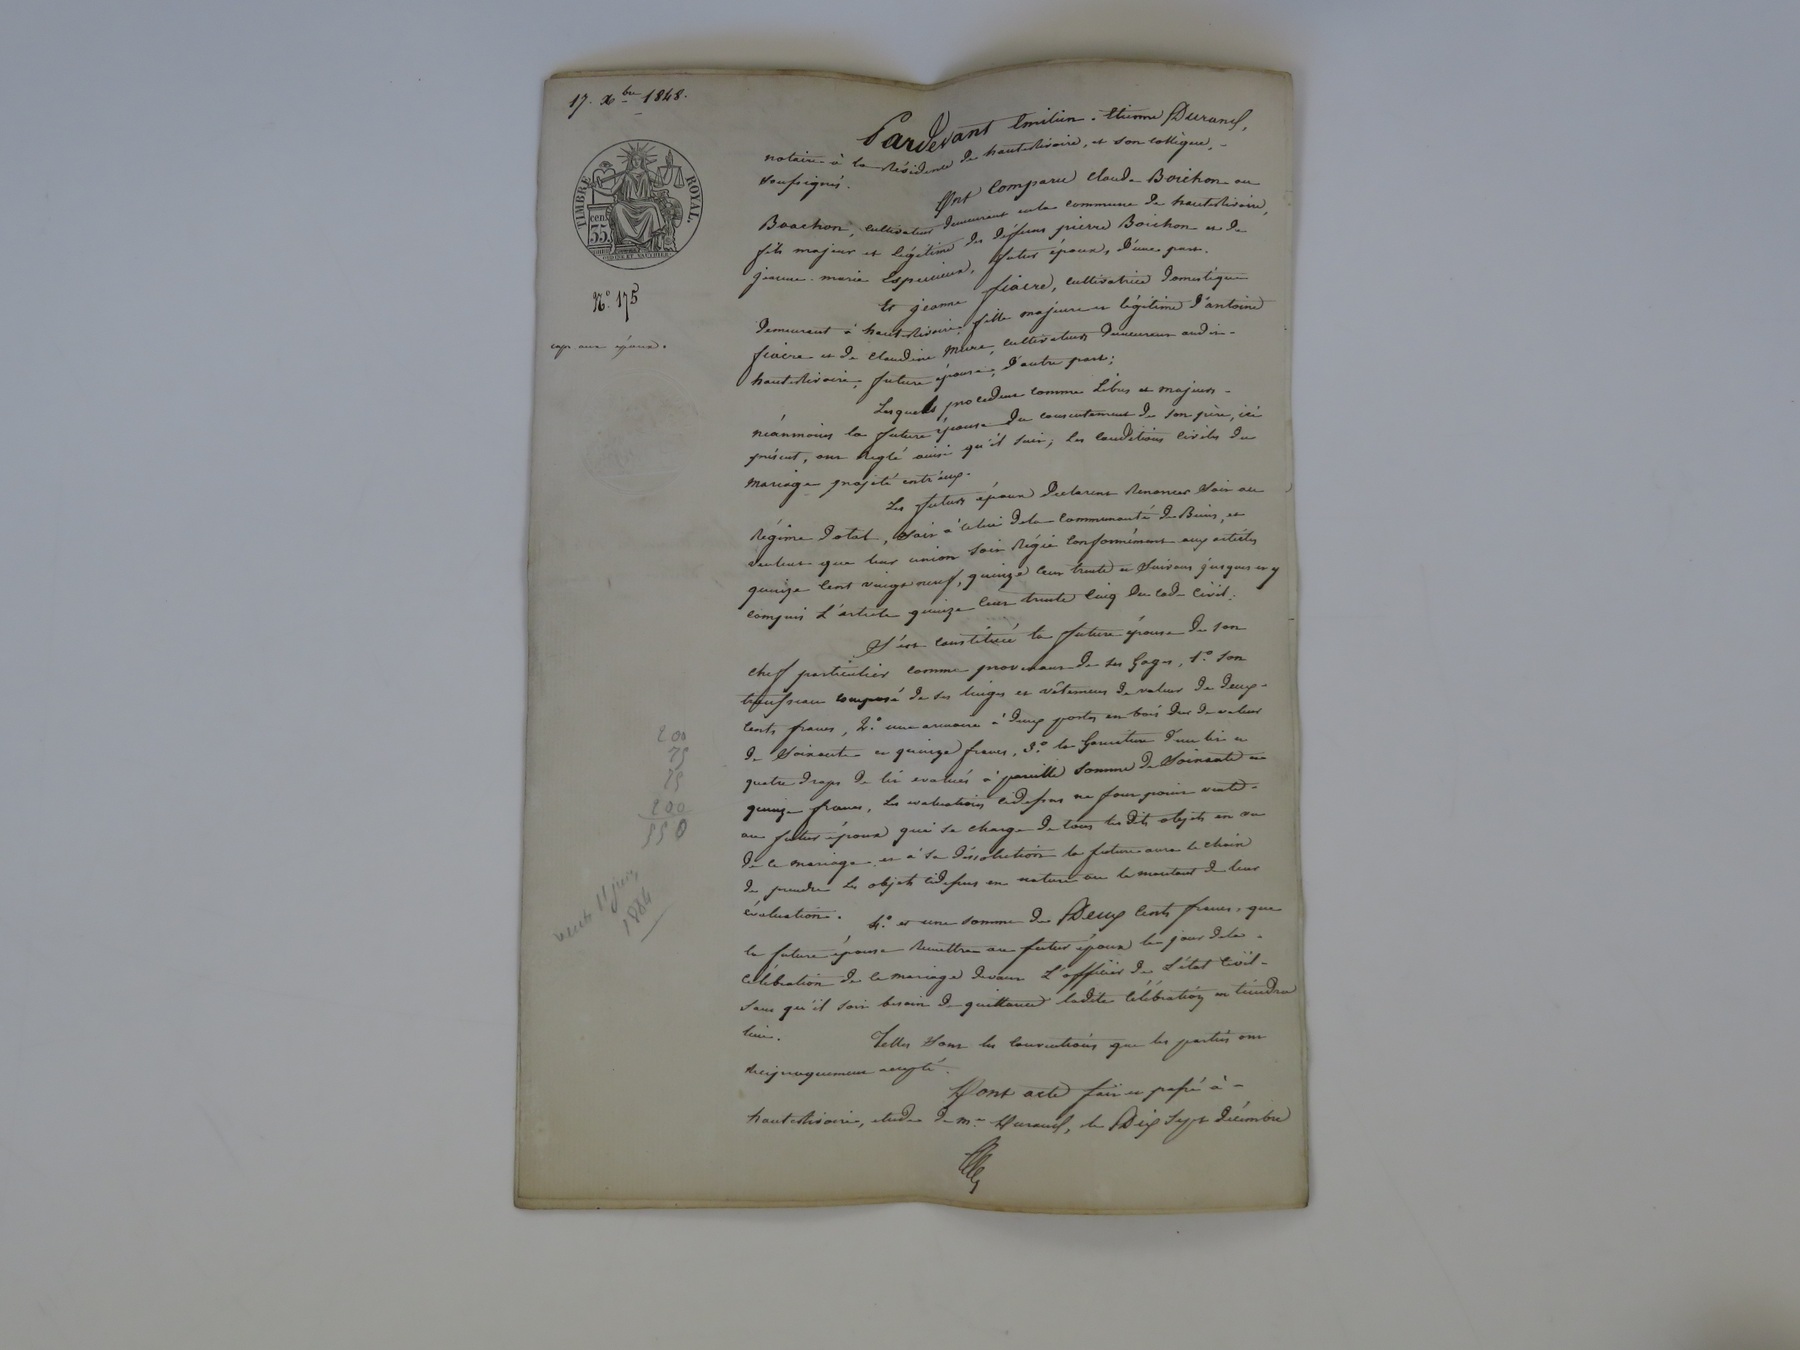 17. Xbre 1848.
TIMBRE ROYAL.
cen.
35
N.º 175
expn aux époux.
Pardevant Emilien-Etienne Durand,
notaire à la Résidence de hauterivoire, et son collègue,
soussignés.
Ont Comparu Claude Boichon ou
Boachon, cultivateur demeurant en la commune de hauterivoire,
fils majeur et légitime des défunts pierre Boichon et de
jeanne-marie, futur époux, d'une part.
Et jeanne fiaere, cultivatrice domestique
demeurant à hauterivoire, fille majeure et légitime d'antoine
fiaere et de Claudine Mure, cultivateurs demeurans aud it
hauterivoire, future épouse, d'autre part;
Lesquels procedant comme Libres et majeurs
néanmoins la future épouse du consentement de son père, ici
présent, ont Réglé ainsi qu'il suit, les conditions civiles du
mariage projeté entr'eux.
Les futurs époux déclarent Renoncer soit au
Régime dotal, soit à celui de la communauté de Biens, et
veulent que leur union soit Régie conformément aux articles
quinze cent vingt neuf, quinze cent trente et suivans jusques et y
compris L'article quinze cent trente cinq du code civil.
S'est constitué la future épouse de son
chef particulier comme provenant de ses Gages, 1.º son
trousseau composé de ses linges et vêtemens de valeur de deux
cents francs, 2.º une armoire à deux portes en bois dur de valeur
de Soixante et quinze francs, 3.º la Garniture d'un lit et
quatre draps de lit evalués à pareille somme de Soixante et
quinze francs. Les evaluations cidessus ne font point vente
au futur époux qui se charge de tous lesdits objets en vu
de ce mariage et à sa dissolution la future aura le choix
de prendre les objets cidessus en nature ou le montant de leur
évaluation.
4.º et une somme de Deux Cents francs, que
la future épouse Remettra au futur époux le jour de la
célébration de ce mariage devant L'officier de L'état Civil
sans qu'il soit besoin de quittance ladite célébration en tiendra
lieu.
Telles sont les conventions que les parties ont
Réciproquement accepté.
Dont acte fait et passé à
hauterivoire, etude de m.e Durand, le Dix Sept décembre
200
75
75
200
550
11 juin
1884